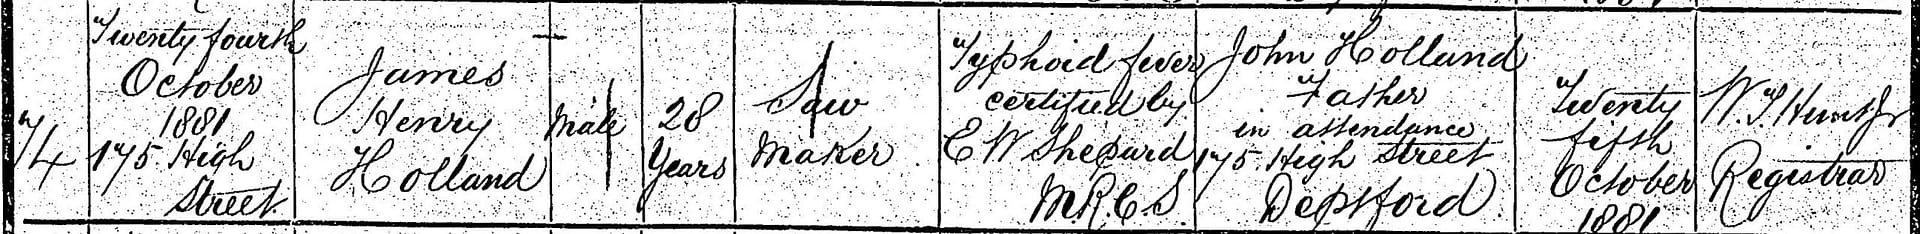 74
Twenty fourth
October
1881
175 High
Street
James
Henry
Holland
Male
28
Years
Saw
Maker
Typhoid fever
certified by
E W Shepard
M.R.C.S.
John Holland
Father
in attendance
175 High Street
Deptford
Twenty
fifth
October
1881
Registrar